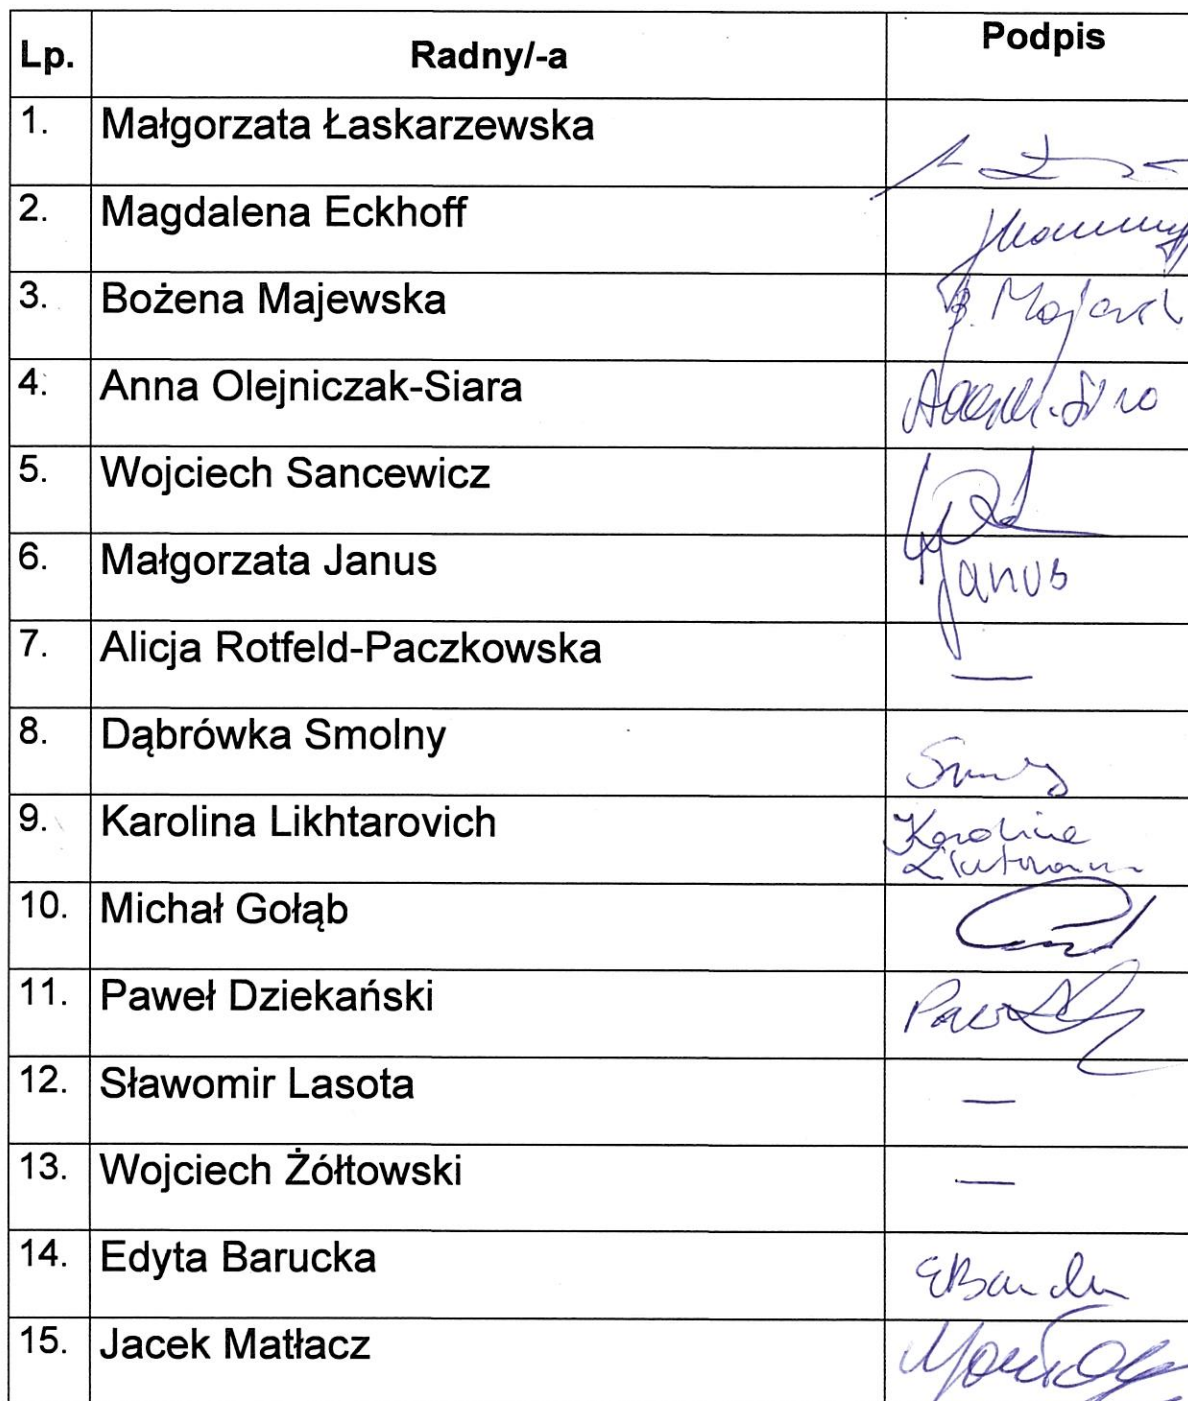 Lp. Radny/-a Podpis
1. Małgorzata Łaskarzewska
2. Magdalena Eckhoff
3. Bożena Majewska B.
4. Anna Olejniczak-Siara
5. Wojciech Sancewicz
6. Małgorzata Janus Janus
7. Alicja Rotfeld-Paczkowska —
8. Dąbrówka Smolny
9. Karolina Likhtarovich Karolina
10. Michał Gołąb
11. Paweł Dziekański
12. Sławomir Lasota —
13. Wojciech Żółtowski —
14. Edyta Barucka
15. Jacek Matłacz